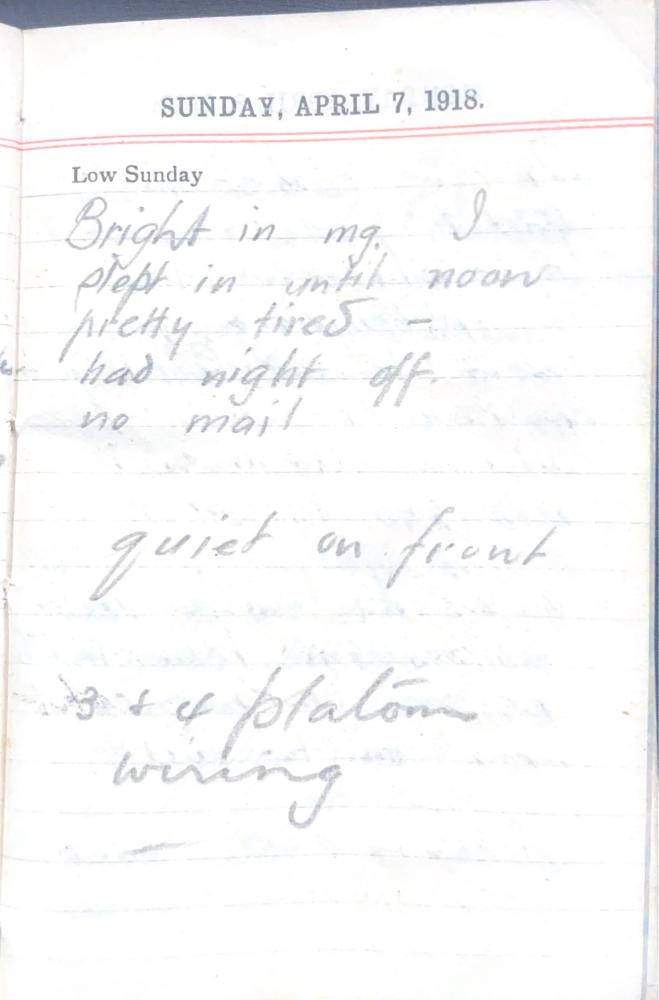 SUNDAY, APRIL 7, 1918.
Low Sunday
Bright in mg. I
slept in until noon
pretty tired –
had night off.
no mail
quiet on front
3 & 4 platoons
wiring